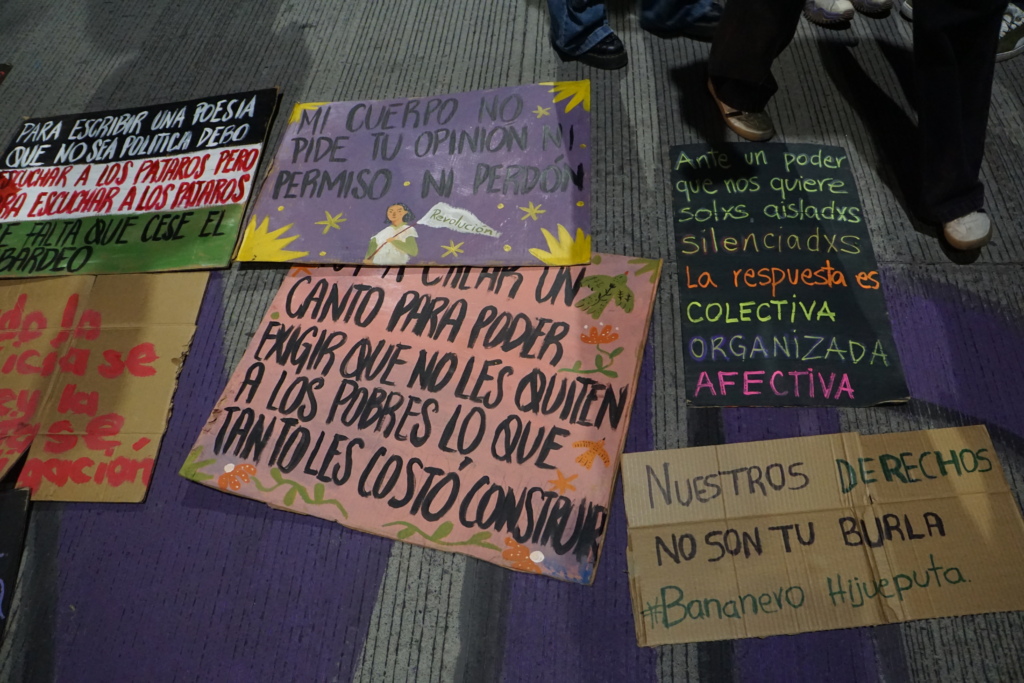 PARA ESCRIBIR UNA POESIA
QUE NO SEA POLITICA DEBO
ESCUCHAR A LOS PAJAROS PERO
PARA ESCUCHAR A LOS PAJAROS
FALTA QUE CESE EL
BARDEO
MI CUERPO NO
PIDE TU OPINION NI
PERMISO NI PERDÓN
Revolución
A CREAR UN
CANTO PARA PODER
EXIGIR QUE NO LES QUITEN
A LOS POBRES LO QUE
TANTO LES COSTÓ CONSTRUIR
Ante un poder
que nos quiere
solxs, aisladxs
silenciadxs
La respuesta es
COLECTIVA
ORGANIZADA
AFECTIVA
la
se
la
se,
NUESTROS DERECHOS
NO SON TU BURLA
#Bananero Hijueputa.